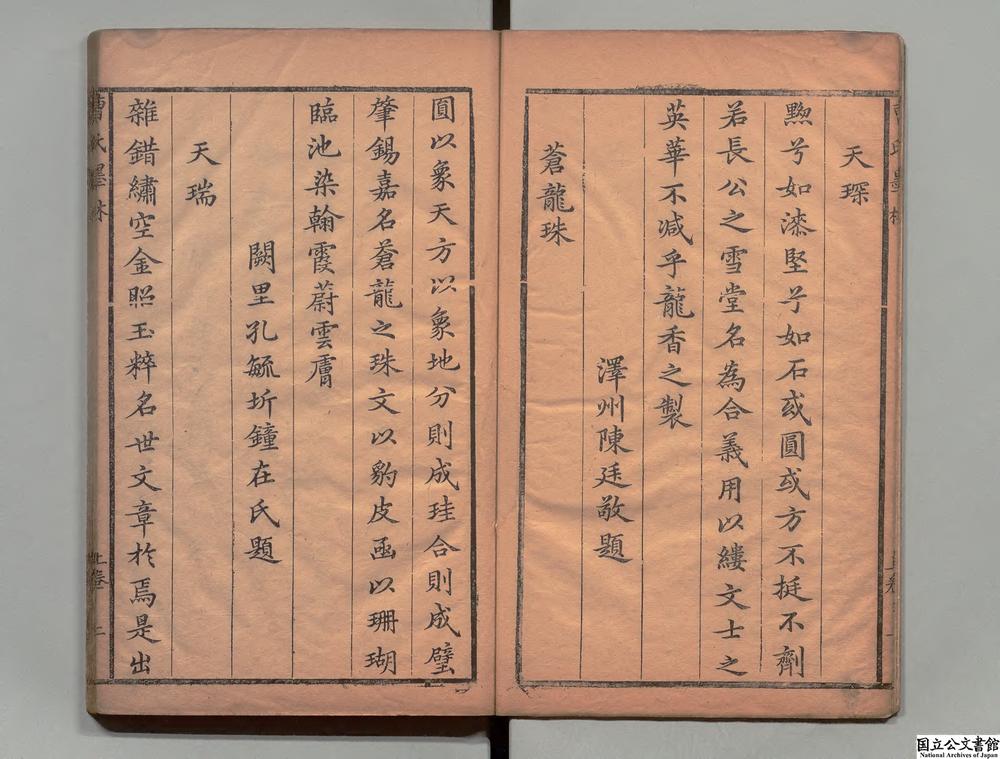 天琛
黝兮如漆堅兮如石或圓或方不挺不劑
若長公之雪堂名為合義用以縷文士之
英華不減乎龍香之製
澤州陳廷敬題
蒼龍珠
圓以象天方以象地分則成珪合則成璧
肇錫嘉名蒼龍之珠文以豹皮函以珊瑚
臨池染翰霞蔚雲膚
闕里孔毓圻鐘在氏題
天瑞
雜錯繡空金照玉粹名世文章於焉是出
曹氏墨林
上卷
一
曹氏墨林
上卷
二
国立公文書館
National Archives of Japan